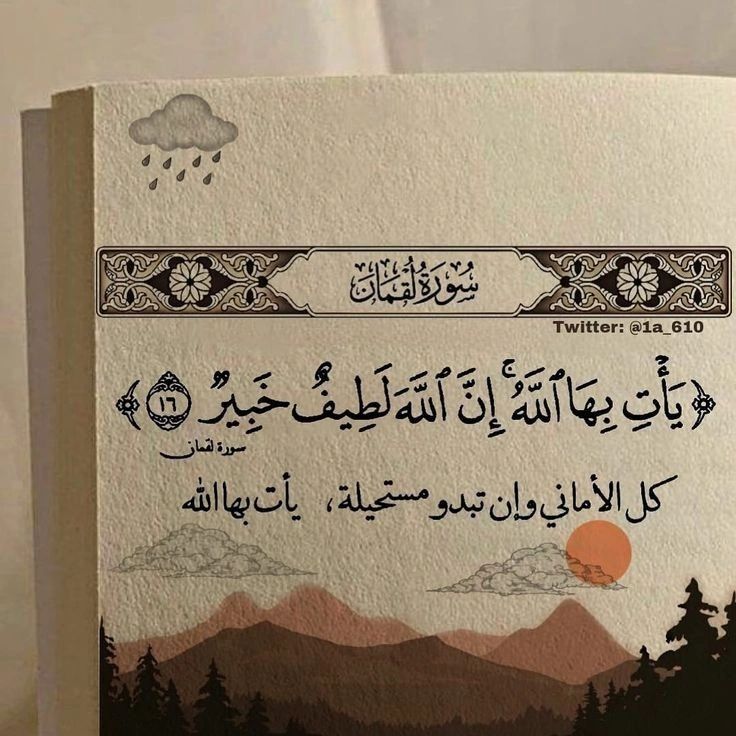 سُورَةُ لُقْمَانَ
Twitter: @1a_610
﴿يَأْتِ بِهَا ٱللَّهُ ۚ إِنَّ ٱللَّهَ لَطِيفٌ خَبِيرٌ ١٦﴾
سورة لقمان
كل الأماني وإن تبدو مستحيلة، يأت بها الله